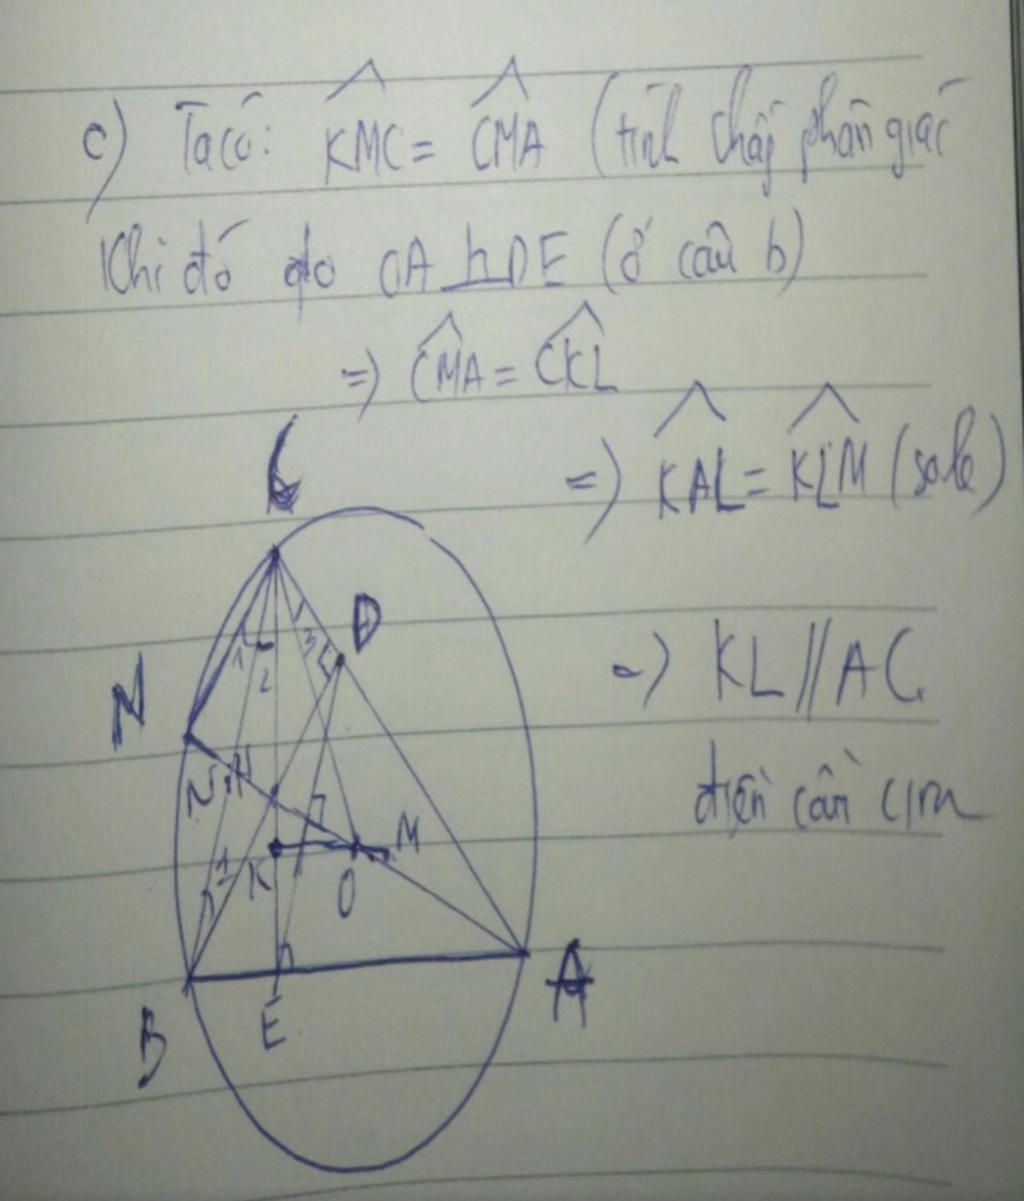 c) Ta có: KMC = CMA (tính chất phân giác
Khi đó do OA ⊥ DE (ở câu b)
=> CMA = CKL
=> KAL = KLM (sole)
=> KL // AC
điều cần cm
C
D
1
2
3
N
H
1
K
O
M
B
E
A